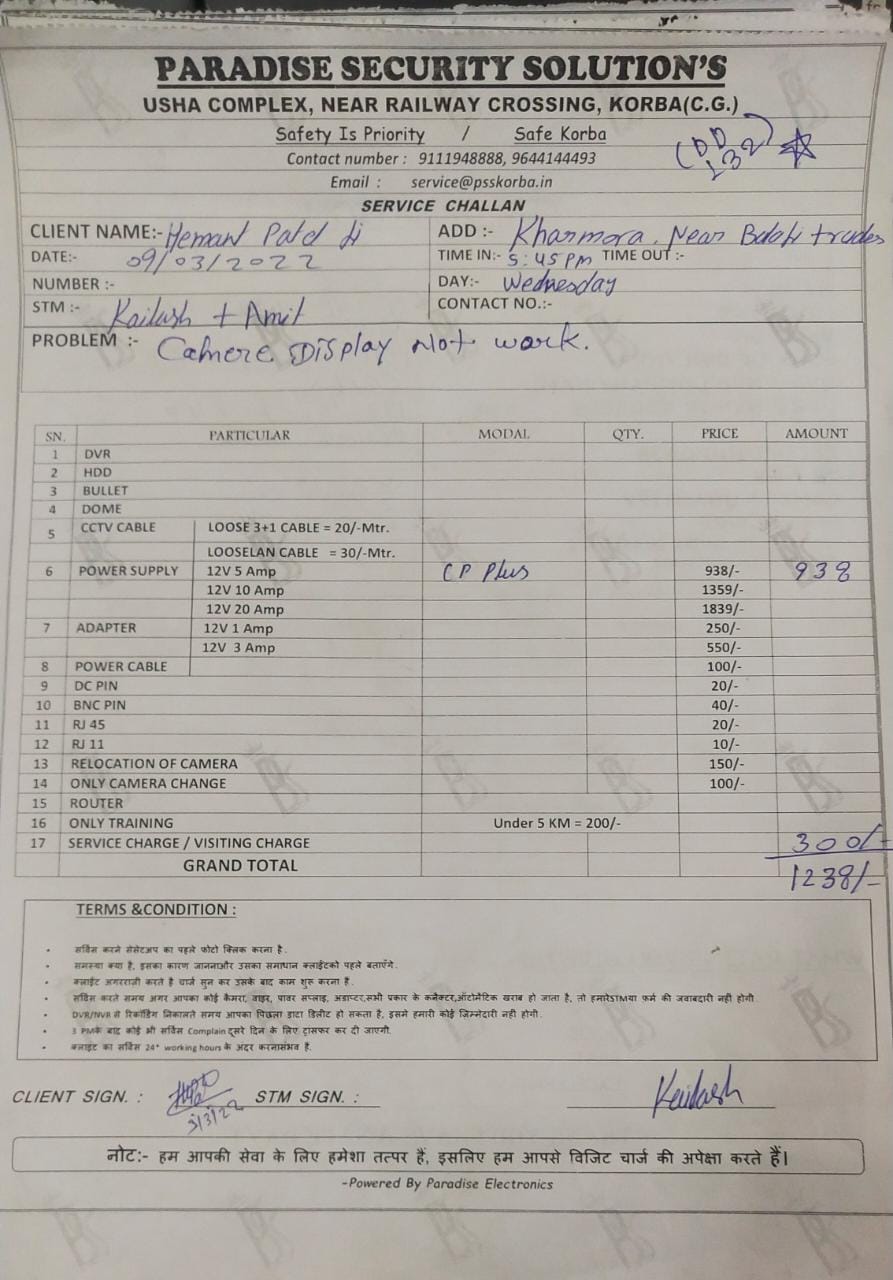 PARADISE SECURITY SOLUTION'S
USHA COMPLEX, NEAR RAILWAY CROSSING, KORBA(C.G.)
Safety Is Priority / Safe Korba
Contact number : 9111948888, 9644144493
Email : service@psskorba.in
SERVICE CHALLAN
CLIENT NAME:- Hemant Patel Ji ADD :- Kharmora, Near Balaji trades
DATE:- 09/03/2022 TIME IN:- 5:45 PM TIME OUT :-
NUMBER :- DAY:- Wednesday
STM :- Kailash + Amit CONTACT NO.:-
PROBLEM :- Camere Display Not work.
SN. PARTICULAR MODAL QTY. PRICE AMOUNT
1 DVR
2 HDD
3 BULLET
4 DOME
5 CCTV CABLE LOOSE 3+1 CABLE = 20/-Mtr.
LOOSELAN CABLE = 30/-Mtr.
6 POWER SUPPLY 12V 5 Amp CP Plus 938/- 938
12V 10 Amp 1359/-
12V 20 Amp 1839/-
7 ADAPTER 12V 1 Amp 250/-
12V 3 Amp 550/-
8 POWER CABLE 100/-
9 DC PIN 20/-
10 BNC PIN 40/-
11 RJ 45 20/-
12 RJ 11 10/-
13 RELOCATION OF CAMERA 150/-
14 ONLY CAMERA CHANGE 100/-
15 ROUTER
16 ONLY TRAINING Under 5 KM = 200/-
17 SERVICE CHARGE / VISITING CHARGE 300/-
GRAND TOTAL 1238/-
TERMS &CONDITION :
• सर्विस करने सेसेटअप का पहले फोटो क्लिक करना है .
• समस्या क्या है, इसका कारण जाननाऔर उसका समाधान क्लाईंटको पहले बताएँगे.
• क्लाईंट अगरराजी करते है चार्ज सुन कर उसके बाद काम शुरू करना है .
• सर्विस करते समय अगर आपका कोई कैमरा, वाइर, पावर सप्लाइ, अडाप्टर,सभी प्रकार के कनैक्टर,ऑटोमैटिक खराब हो जाता है, तो हमारेSTMया फर्म की जवाबदारी नहीं होगी .
• DVR/NVR से रिकॉर्डिंग निकालते समय आपका पिछला डाटा डिलीट हो सकता है, इसमे हमारी कोई जिम्मेदारी नहीं होगी .
• 3 PMके बाद कोई भी सर्विस Complain दूसरे दिन के लिए ट्रांसफर कर दी जाएगी.
• क्लाइंट का सर्विस 24* working hours के अंदर करनासंभव है.
CLIENT SIGN. : STM SIGN. : Kailash
नोट:- हम आपकी सेवा के लिए हमेशा तत्पर हैं, इसलिए हम आपसे विजिट चार्ज की अपेक्षा करते हैं।
-Powered By Paradise Electronics